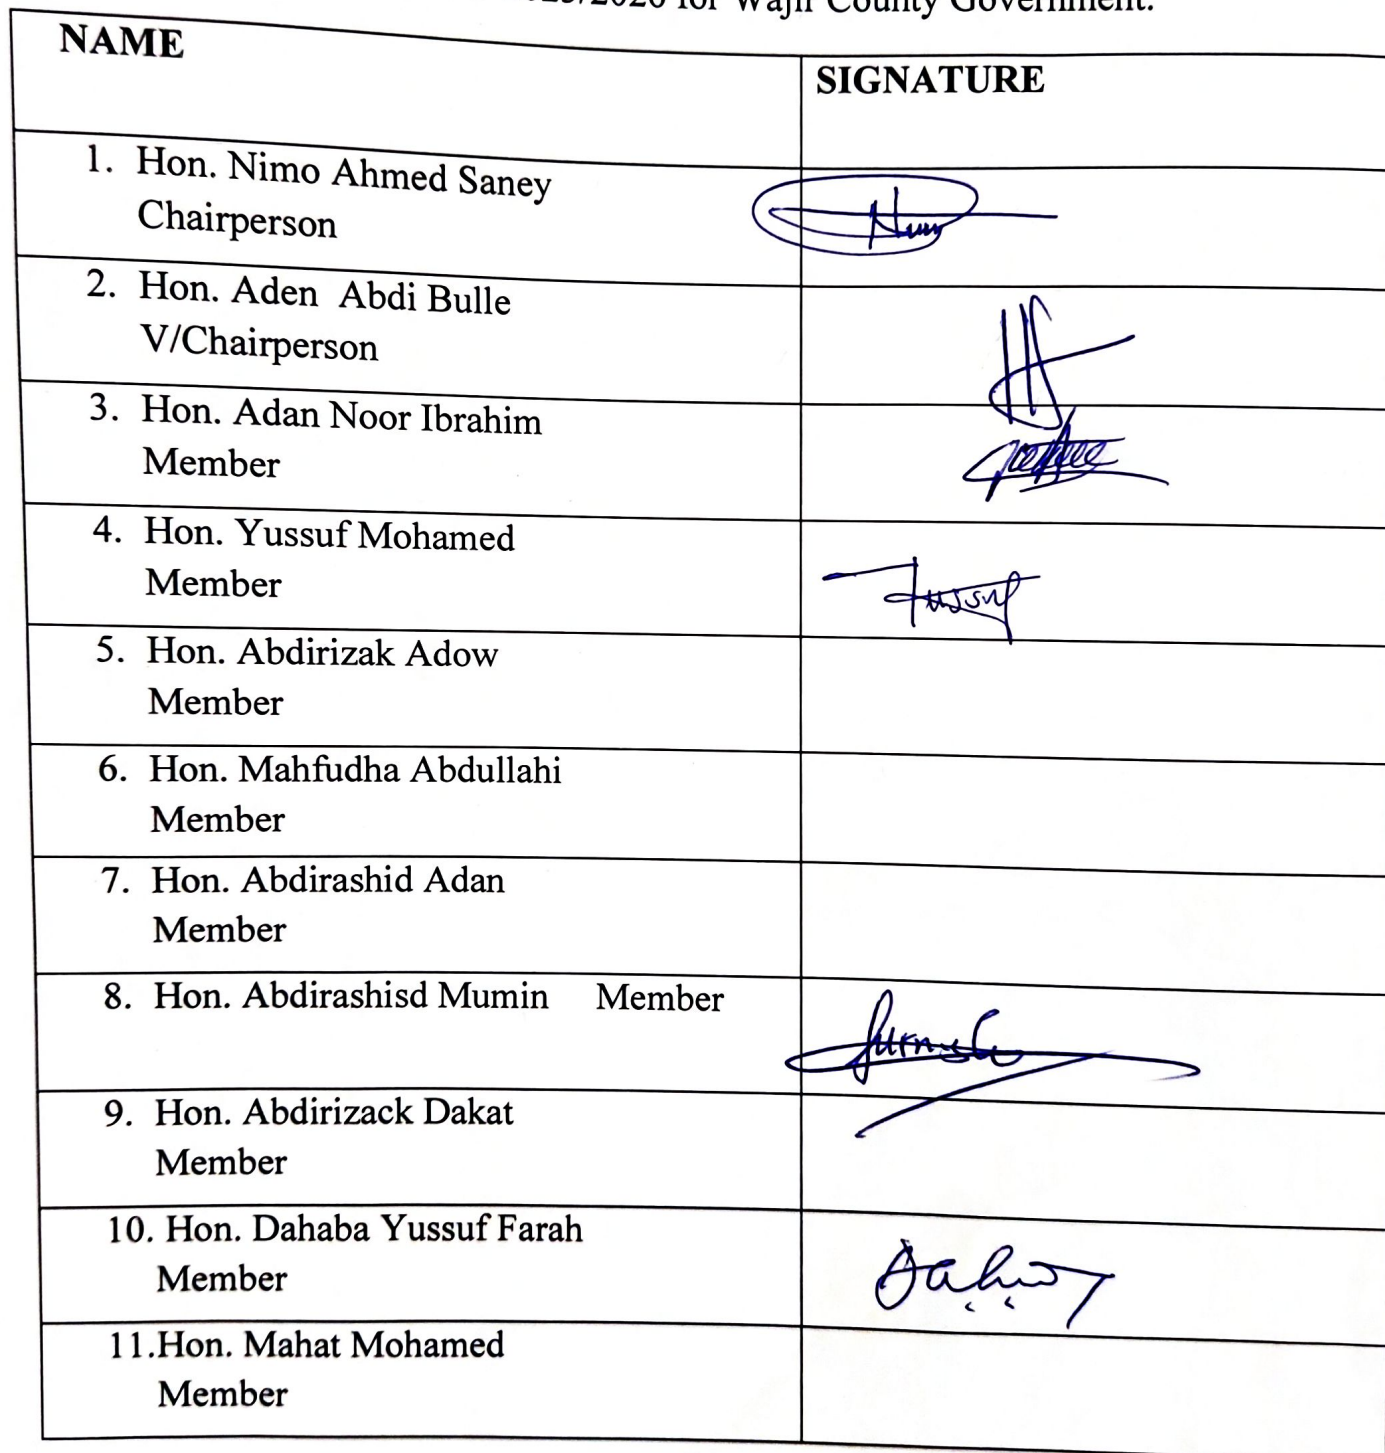 2025/2026 for Wajir County Government.
NAME
SIGNATURE
1. Hon. Nimo Ahmed Saney
Chairperson
2. Hon. Aden Abdi Bulle
V/Chairperson
3. Hon. Adan Noor Ibrahim
Member
4. Hon. Yussuf Mohamed
Member
Yussuf
5. Hon. Abdirizak Adow
Member
6. Hon. Mahfudha Abdullahi
Member
7. Hon. Abdirashid Adan
Member
8. Hon. Abdirashisd Mumin Member
9. Hon. Abdirizack Dakat
Member
10. Hon. Dahaba Yussuf Farah
Member
11.Hon. Mahat Mohamed
Member